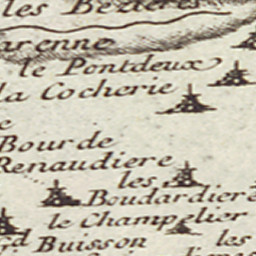 les Bezieres
arenne
le Pontdeux
la Cocherie
e
Bour de
Renaudiere
les
Boudardiere
le Champelier
Gd Buisson
les